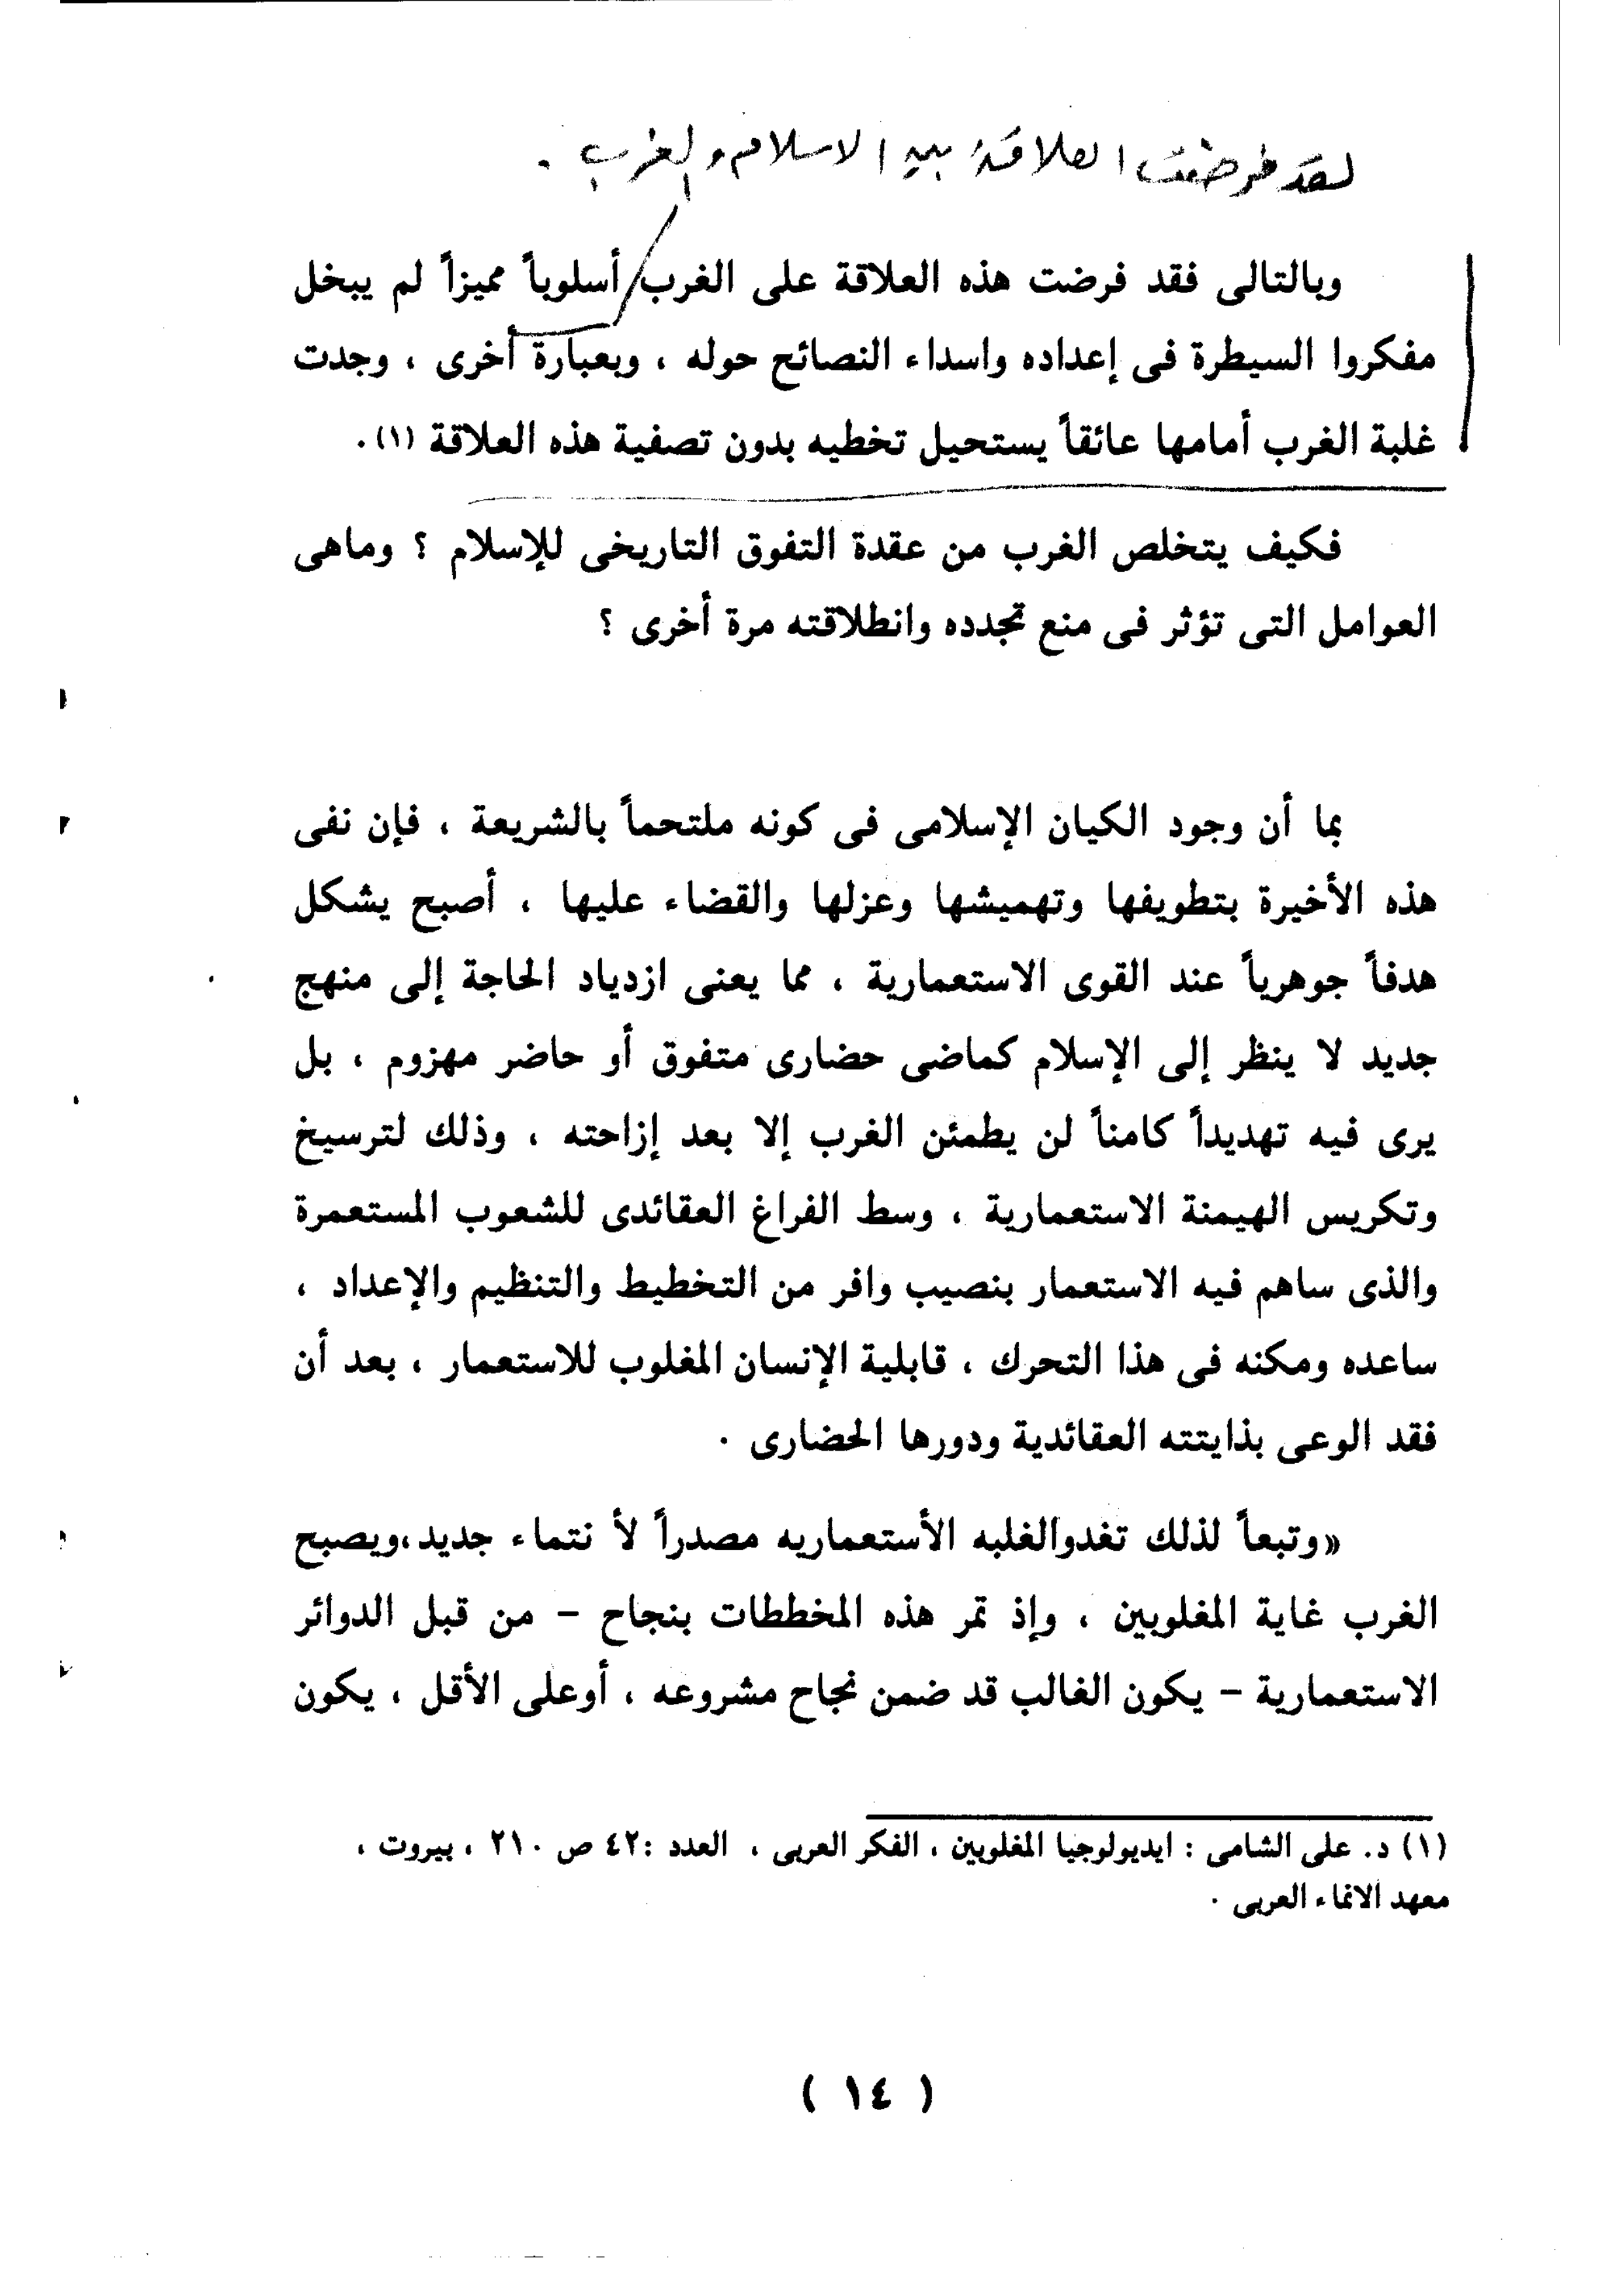 لقد فرضت العلاقة بين الاسلام والغرب .
وبالتالى فقد فرضت هذه العلاقة على الغرب أسلوباً مميزاً لم يبخل
مفكروا السيطرة فى إعداده واسداء النصائح حوله ، وبعبارة أخرى ، وجدت
غلبة الغرب أمامها عائقاً يستحيل تخطيه بدون تصفية هذه العلاقة (١) .
فكيف يتخلص الغرب من عقدة التفوق التاريخى للإسلام ؟ وماهى
العوامل التى تؤثر فى منع تجدده وانطلاقته مرة أخرى ؟
بما أن وجود الكيان الإسلامى فى كونه ملتحماً بالشريعة ، فإن نفى
هذه الأخيرة بتطويفها وتهميشها وعزلها والقضاء عليها ، أصبح يشكل
هدفاً جوهرياً عند القوى الاستعمارية ، مما يعنى ازدياد الحاجة إلى منهج
جديد لا ينظر إلى الإسلام كماضى حضارى متفوق أو حاضر مهزوم ، بل
يرى فيه تهديداً كامناً لن يطمئن الغرب إلا بعد إزاحته ، وذلك لترسيخ
وتكريس الهيمنة الاستعمارية ، وسط الفراغ العقائدى للشعوب المستعمرة
والذى ساهم فيه الاستعمار بنصيب وافر من التخطيط والتنظيم والإعداد ،
ساعده ومكنه فى هذا التحرك ، قابلية الإنسان المغلوب للاستعمار ، بعد أن
فقد الوعى بذايتته العقائدية ودورها الحضارى .
«وتبعاً لذلك تغدوالغلبه الأستعماريه مصدراً لأ نتماء جديد،ويصبح
الغرب غاية المغلوبين ، وإذ تمر هذه المخططات بنجاح - من قبل الدوائر
الاستعمارية - يكون الغالب قد ضمن نجاح مشروعه ، أوعلى الأقل ، يكون
(١) د. على الشامى : ايديولوجيا المغلوبين ، الفكر العربى ، العدد :٤٢ ص ٢١٠ ، بيروت ،
معهد الانماء العربى .
( ١٤ )